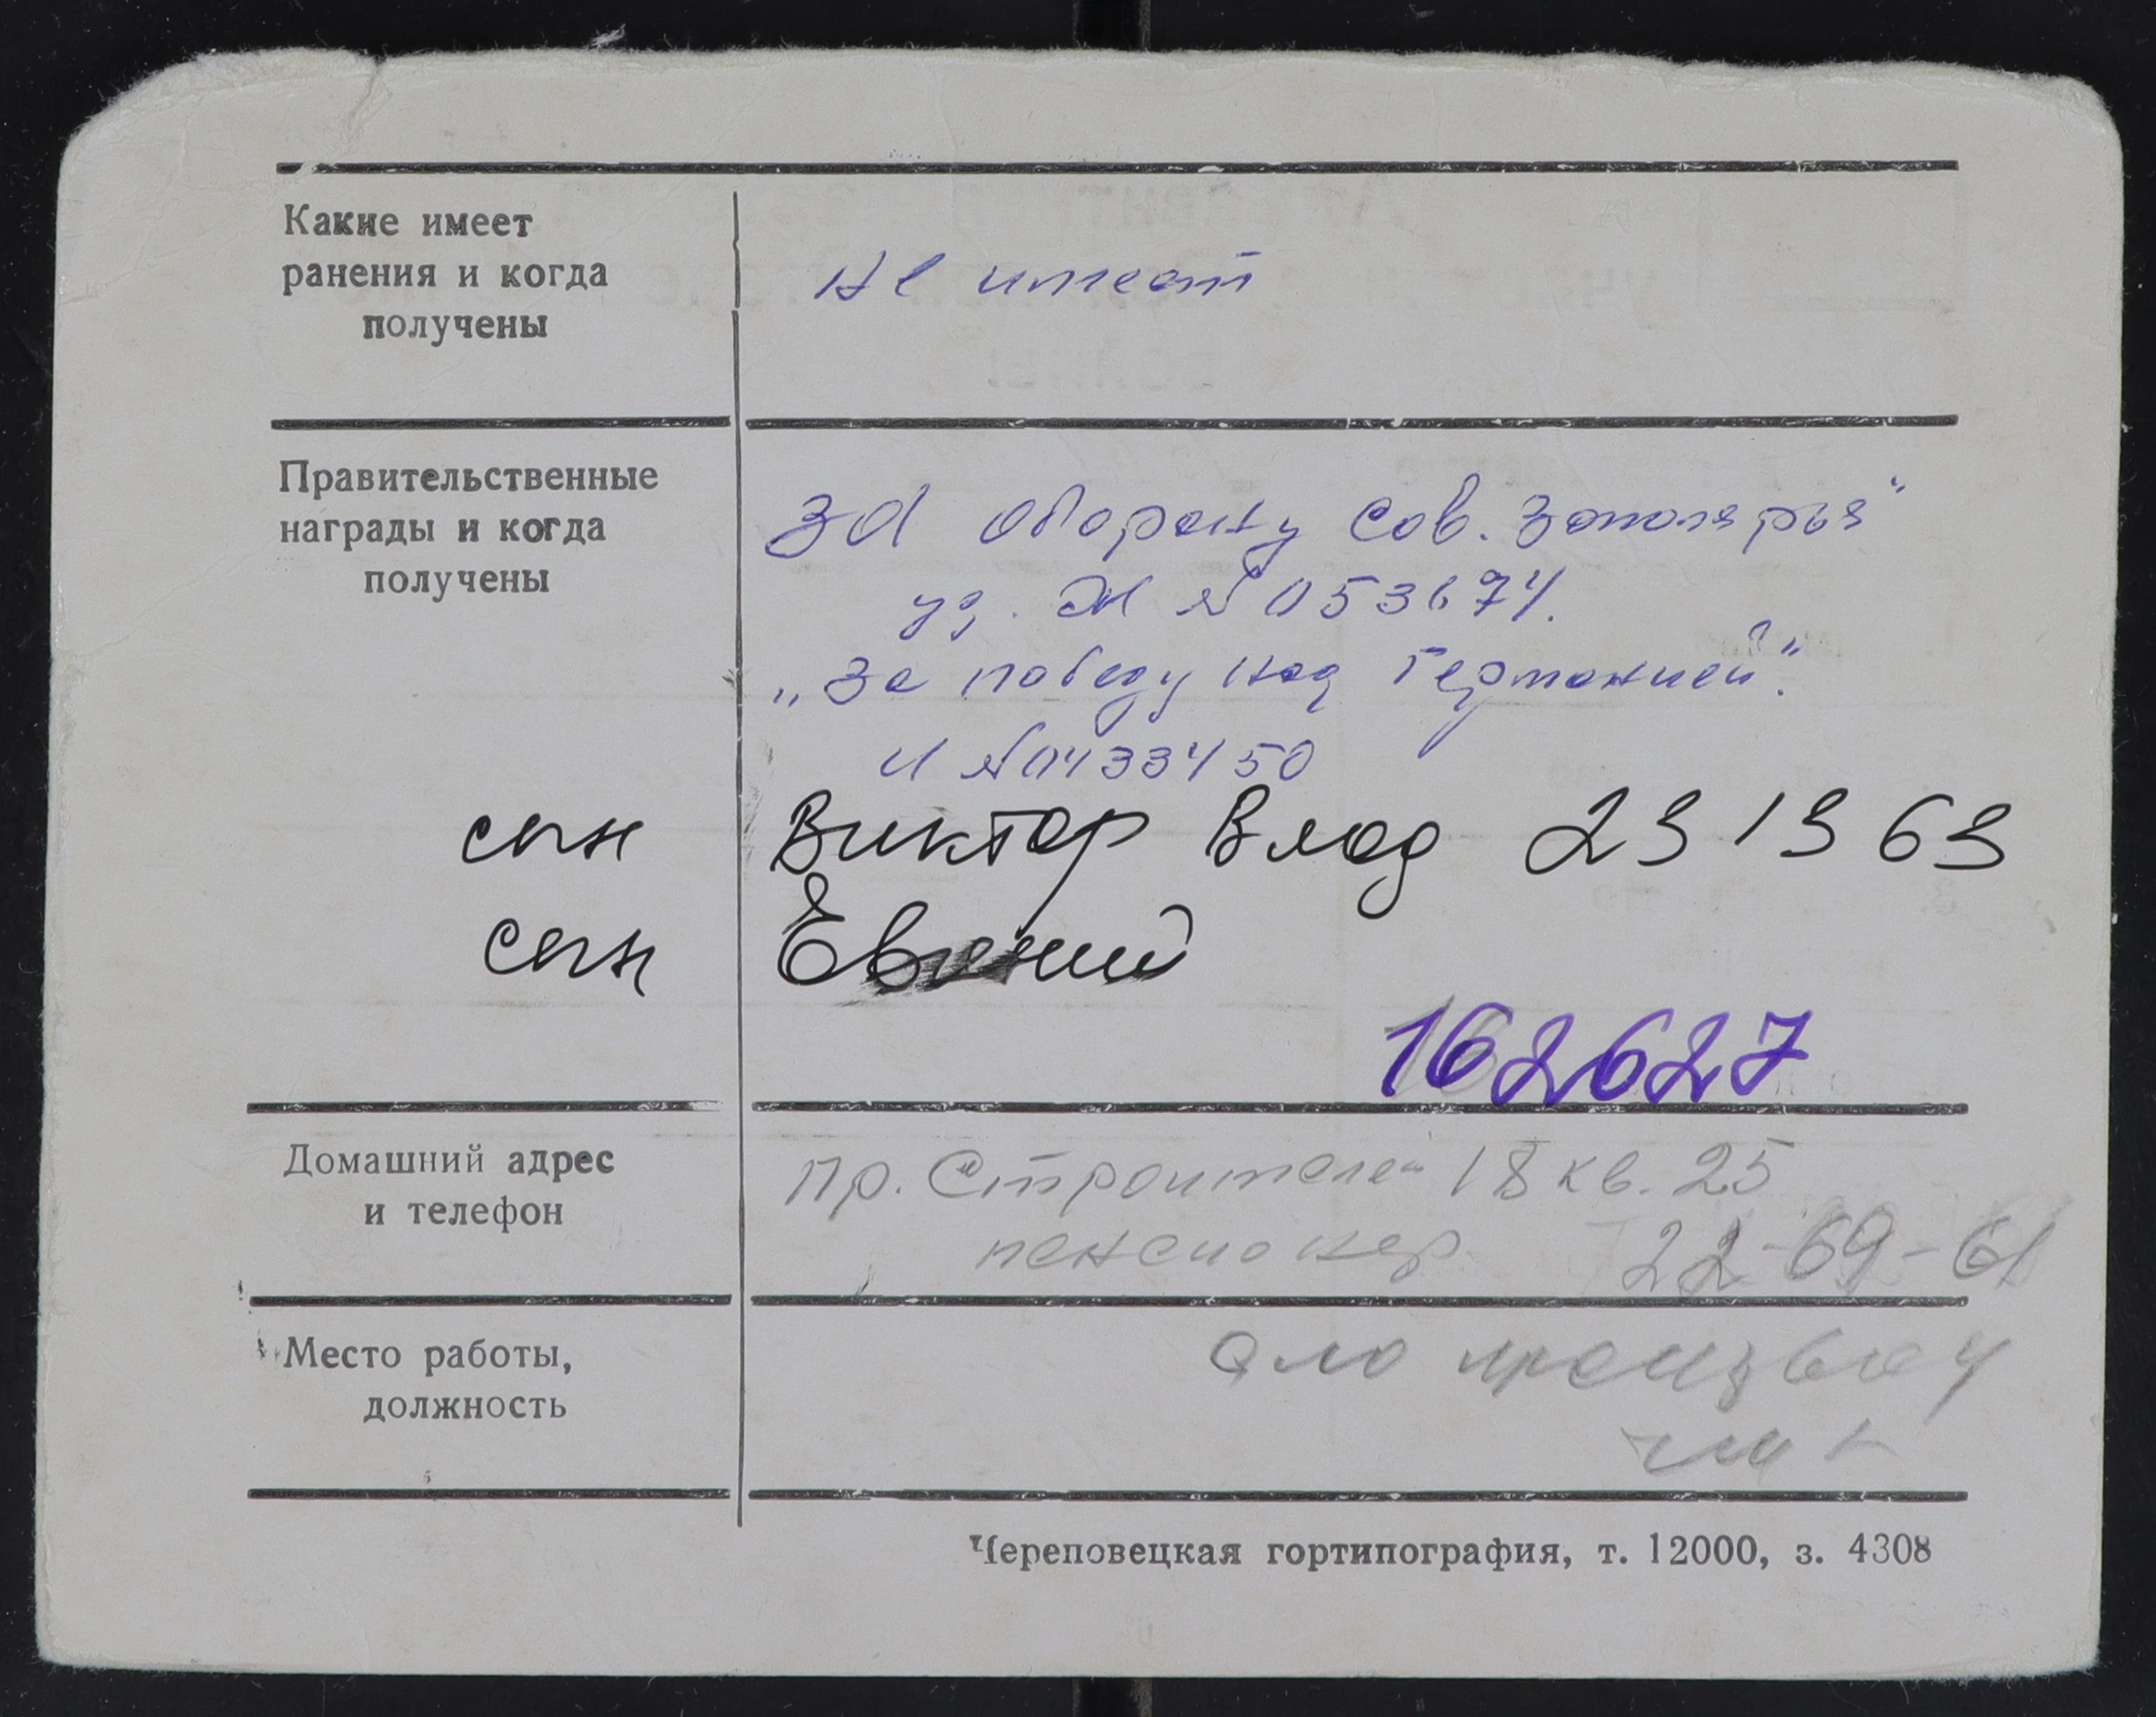 Какие имеет
ранения и когда
получены
не имеет
Правительственные
награды и когда
получены
За оборону Сов. Заполярья"
уд. Ж № 053674.
„За победу над Германией".
И №0433450
сын Виктор Влад 231363
сын Евгений
162627
Домашний адрес
и телефон
пр. Строителей 18 кв. 25
пенсионер 22-69-61
Место работы,
должность
Череповецкая гортипография, т. 12000, з. 4308